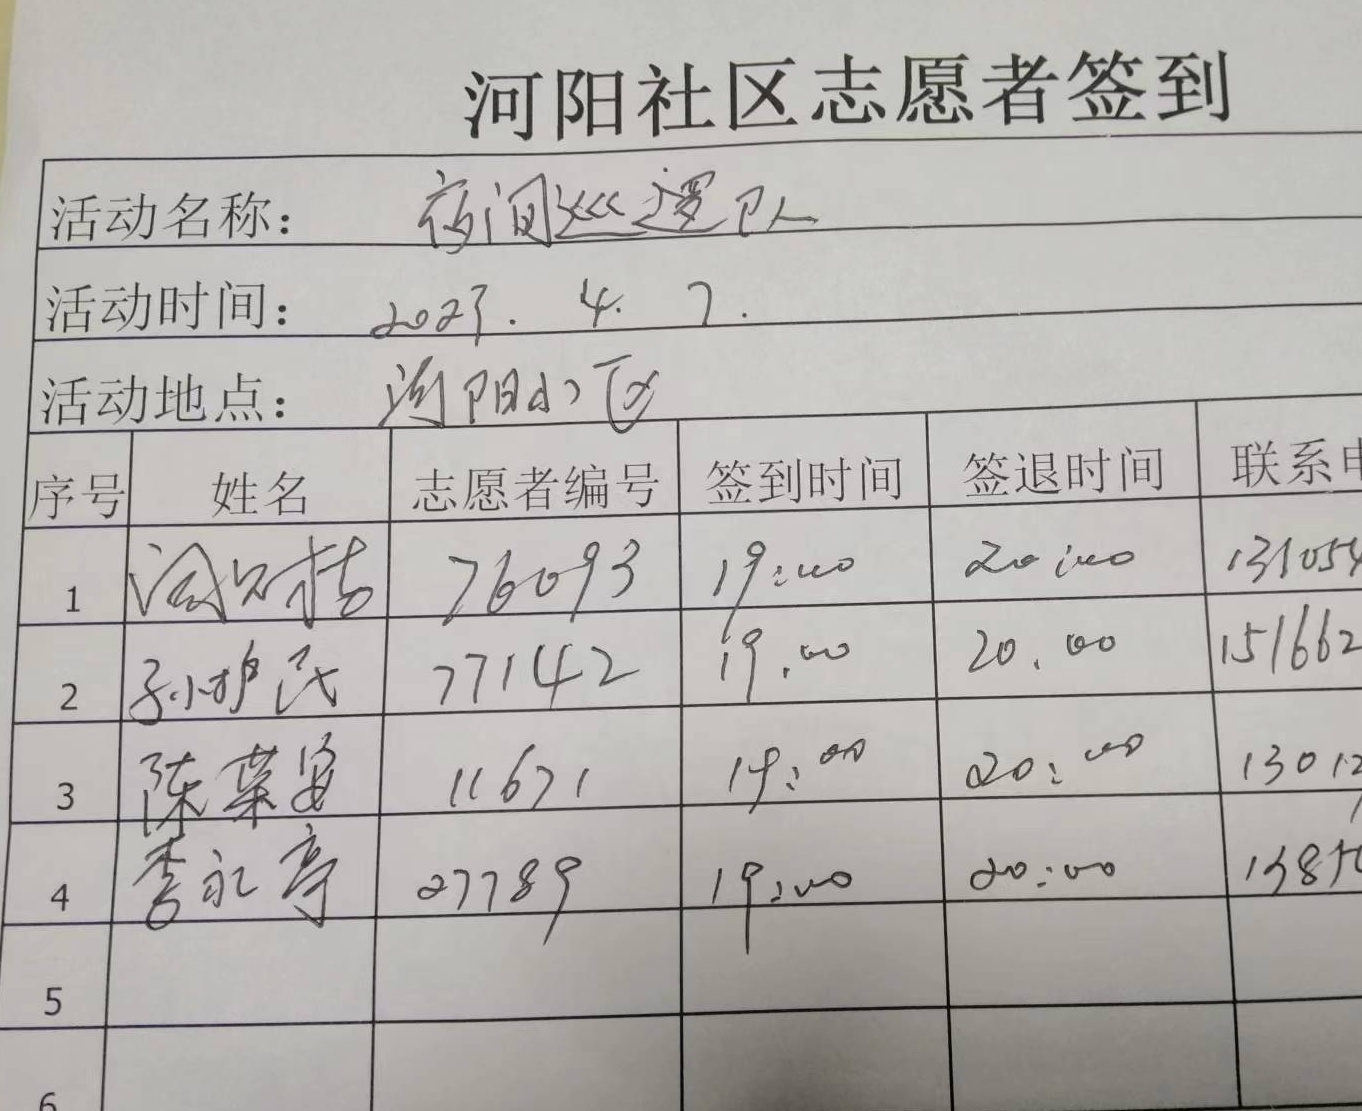 河阳社区志愿者签到
活动名称： 夜间巡逻队
活动时间： 2023. 4. 7.
活动地点： 河阳小区
序号 姓名 志愿者编号 签到时间 签退时间 联系电
1 76093 19:00 20:00 131054
2 孙护民 77142 19.00 20.00 151662
3 陈葉安 11671 19:00 20:00 13012
4 李永亭 27789 19:00 20:00 1385
5
6